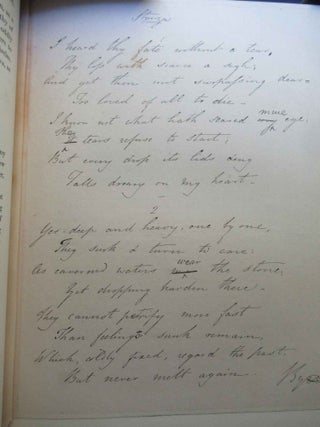 I heard thy fate without a tear,
Thy loss with scarce a sigh;
And yet thou wert surpassing dear—
Too loved of all to die—
I know not what hath seared mine eye
tears refuse to start;
But every drop its lids deny
Falls dreary on my heart—
2
Yes—deep and heavy, one by one,
They sink & turn to care:
As caverned waters wear the stone,
Yet dropping harden there—
They cannot petrify more fast
Than feelings sunk remain,
Which, coldly fixed, regard the past,
But never melt again—